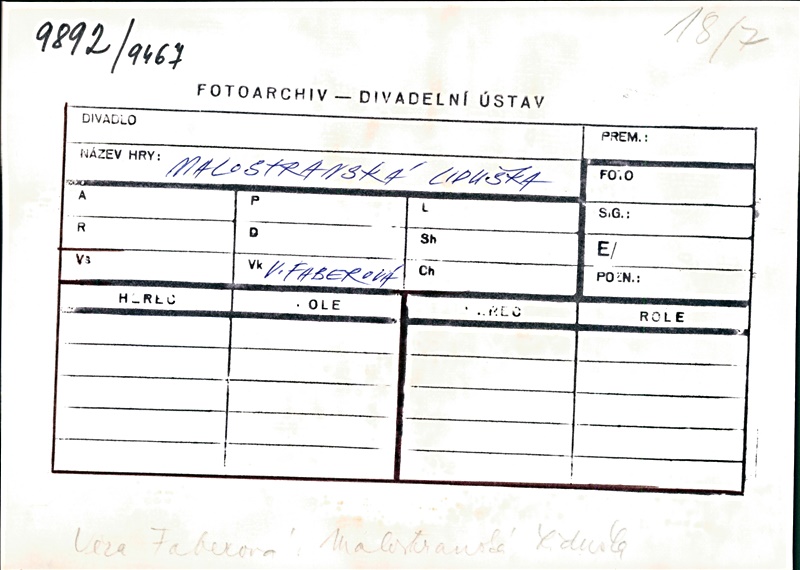 9892/9467
18/7
FOTOARCHIV — DIVADELNÍ ÚSTAV
DIVADLO
PREM.:
NÁZEV HRY: MALOSTRANSKÁ LIDUŠKA
FOTO
A P L
SIG.:
R D Sh
E/
Vs Vk V. FABEROVÁ Ch
POZN.:
HEREC ROLE HEREC ROLE
Věra Faberová: Malostranská Liduška